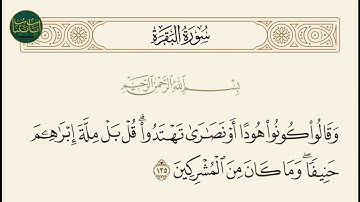 سُورَةُ البَقَرَةِ
بِسْمِ اللَّهِ الرَّحْمَٰنِ الرَّحِيمِ
وَقَالُوا۟ كُونُوا۟ هُودًا أَوْ نَصَٰرَىٰ تَهْتَدُوا۟ ۗ قُلْ بَلْ مِلَّةَ إِبْرَٰهِـۧمَ
حَنِيفًا ۖ وَمَا كَانَ مِنَ ٱلْمُشْرِكِينَ ١٣٥